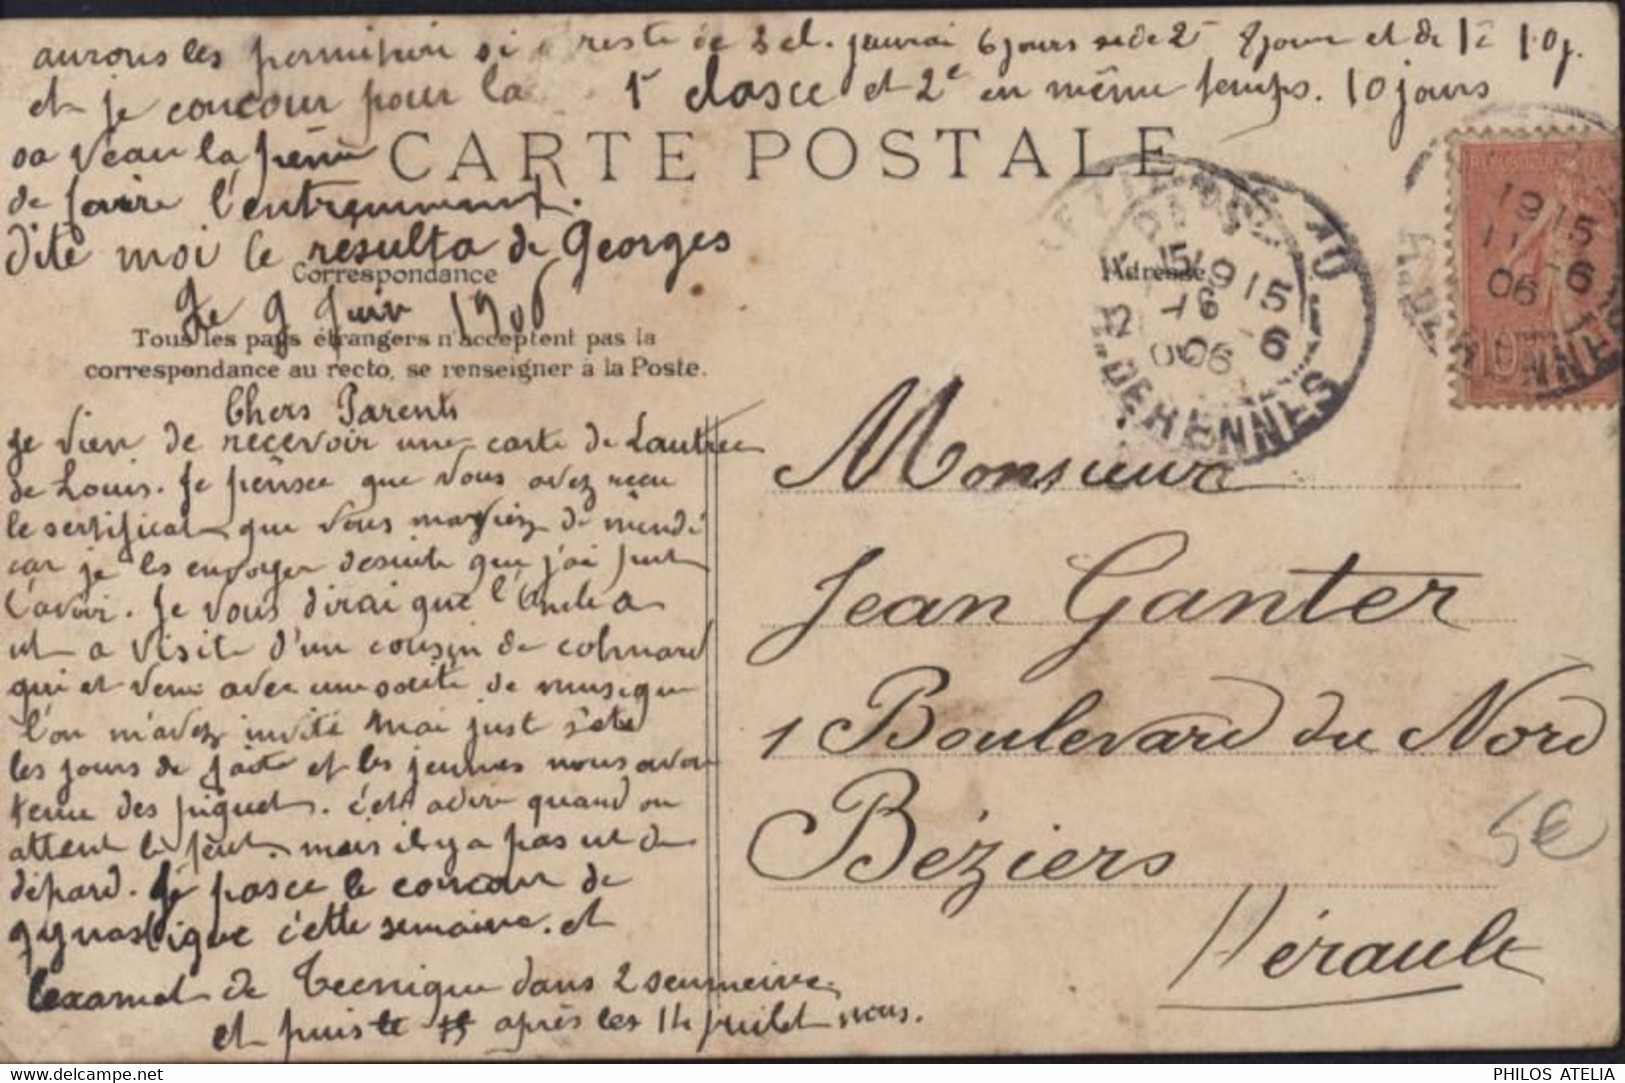 aurons les permission si reste de 3 el. jaurai 6 jours se de 2 8 jours et de 1e 10j.
et je concour pour la 1e classe et 2e en même temps. 10 jours
sa veau la peine
CARTE POSTALE
de faire l'entrennement.
dite moi le resulta de Georges
Correspondance
Adresse
Le 9 Juin 1906
Tous les pays étrangers n'acceptent pas la
correspondance au recto, se renseigner à la Poste.
Chers Parents
Je vien de recevoir une carte de Lautrec
de Louis. Je pensee que vous avez reçu
le sertificat que vous m'aviez de mendé
car je les envoyer desuite que j'ai put
l'avoir. Je vous dirai que l'oncle a
ut a visite d'un cousin de colmard
qui et venu avec une société de musique
l'on m'avez invité mai just s'ete
les jours de et les jeunes nous avon
tenue des piquet. c'et adire quand on
attent le mais il y a pas ut de
dépard. Je passee le concour de
gynastique cette semaine. et
l'examet de Tecnique dans 2 seumeine
et puis le 15 après les 14 Juillet nous.
Monsieur
Jean Ganter
1 Boulevard du Nord
Béziers
Hérault
5€
DE RENNES
1915
11 -6
06
PHILOS ATELIA